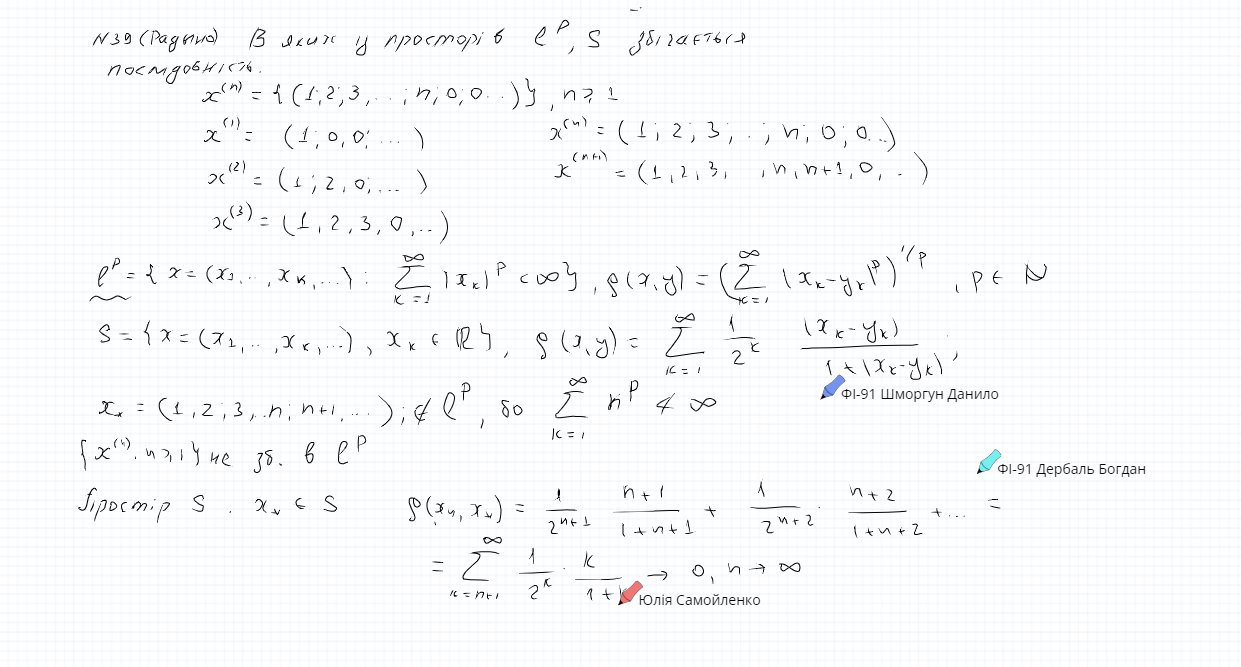 N39 (Радино) В яких у просторів ℓ^p, S збігається
послідовність.
x^(n) = {(1; 2; 3, ...; n; 0; 0...)}, n ≥ 1
x^(1) = (1; 0, 0; ...) x^(n) = (1; 2; 3; ..; n; 0; 0...)
x^(2) = (1; 2, 0; ...) x^(n+1) = (1, 2, 3, , n, n+1, 0, ..)
x^(3) = (1, 2, 3, 0, ..)
ℓ^p = {x = (x_1, .., x_k, ...) : ∑_{k=1}^∞ |x_k|^p < ∞}, ρ(x,y) = (∑_{k=1}^∞ |x_k - y_k|^p)^{1/p}, p ∈ N
S = {x = (x_1, .., x_k, ...), x_k ∈ R}, ρ(x,y) = ∑_{k=1}^∞ 1/2^k |x_k - y_k| / (1 + |x_k - y_k|),
ФІ-91 Шморгун Данило
x_* = (1, 2, 3, .. n; n+1, ...); ∉ ℓ^p, бо ∑_{k=1}^∞ n^p ≮ ∞
{x^(n), n ≥ 1} не зб. в ℓ^p
ФІ-91 Дербаль Богдан
Простір S. x_* ∈ S ρ(x_n, x_*) = 1/2^{n+1} (n+1)/(1+n+1) + 1/2^{n+2} · (n+2)/(1+n+2) + ... =
= ∑_{k=n+1}^∞ 1/2^k · k/(1+k) → 0, n → ∞
Юлія Самойленко